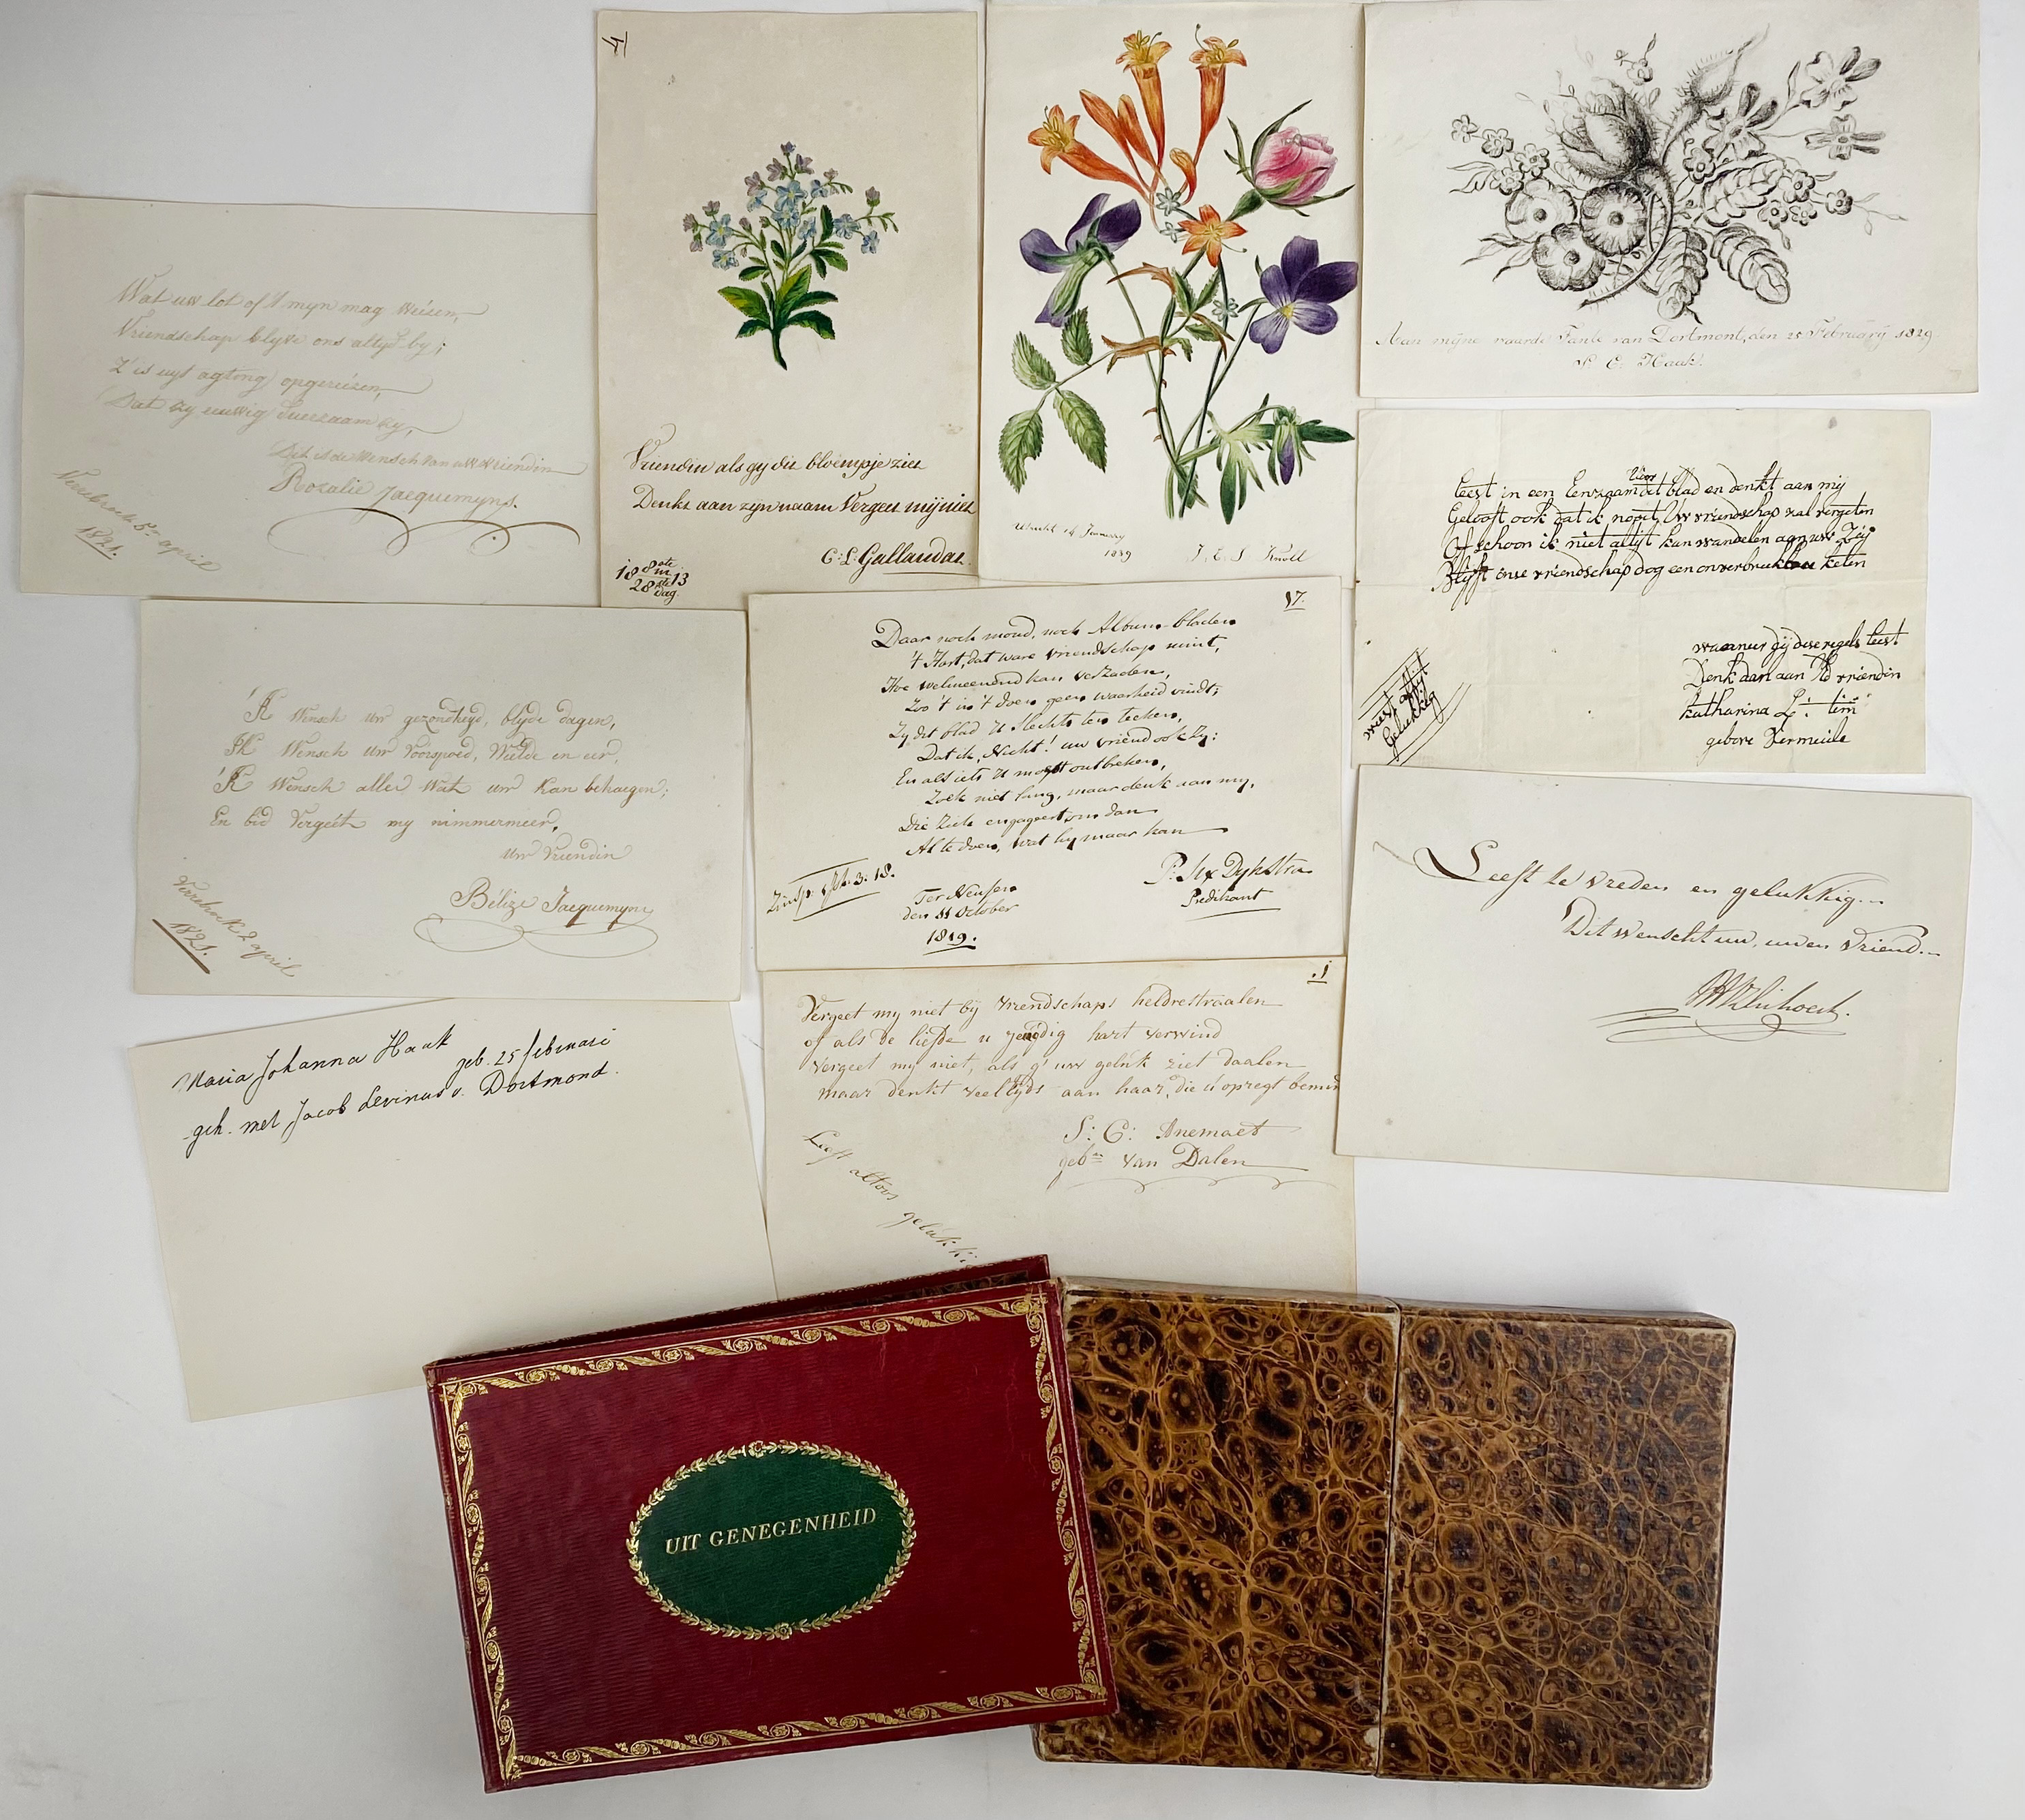 Wat uw lot of 't myn mag weisen,
Vriendschap blyve ons altyd by;
't is uyt agting opgereisen,
Dat zy euwig duerzaam zy,
Dit is de Wensch van uw vriendin
Rozalie Jacquemyns.
5de april
1821.
4
Vriendin als gy dit bloempje ziet
Denkt aan zyn naam Vergeet mij niet
C: L. Gallandat.
18 8ste m. 13
28ste dag.
Utrecht
1829
J. E. S. Knoll
Aan mijne waarde Tante van Dortmont, den 25 February 1829.
C. Haak.
Leest in een Eenzaam Uur dit blad en denkt aan mij
Gelooft ook dat ik nooit Uw vriendschap zal vergeten
Ofschoon ik niet altijt kan wandelen aan uw Zij
Blijft onse vriendschap dog een onverbrukbre keten
wanneer gij dese regels leest
Denk dan aan Ud vriendin
Katharina L:
gebore Vermeule
weest altijt
Gelukkig
'K Wensch uw gezondheyd, blyde dagen,
'K Wensch uw Voorspoed, Weelde en eer,
'K Wensch alles Wat uw kan behaegen;
En bid Vergeet my nimmermeer,
uw Vriendin
Bélize Jacquemyns
2 april
1821.
17.
Daar noch mond, noch Album-bladen
't Hart, dat ware vriendschap mint,
Hoe welmeenend kan verzaden,
Zoo 't in 't doen geen waarheid vindt;
Zy dit blad U slechts ten teeken,
Dat ik, Nicht! uw vriend ook zy:
En als iets U mogt ontbreken,
Zoek niet lang, maar denk aan my,
Die zich engageert om dan
Al te doen, wat hy maar kan
3: 18.
Ter Neusen
den 11 October
1819.
P: Dykstra
Predikant
Leeft te vreden en gelukkig
Dit wenscht uw, uwen vriend
Maria Johanna Haak
geb. 25 februari
geh. met Jacob Levinus v. Dortmond.
.1
Vergeet my niet by vriendschaps heldre straalen
of als de liefde u jeugdig hart verwind
Vergeet my niet, als g' uw geluk ziet daalen
maar denkt veeltyds aan haar, die u opregt bemin
S: C: Anemaet
gebn van Dalen
Leeft altoos gelukki
UIT GENEGENHEID